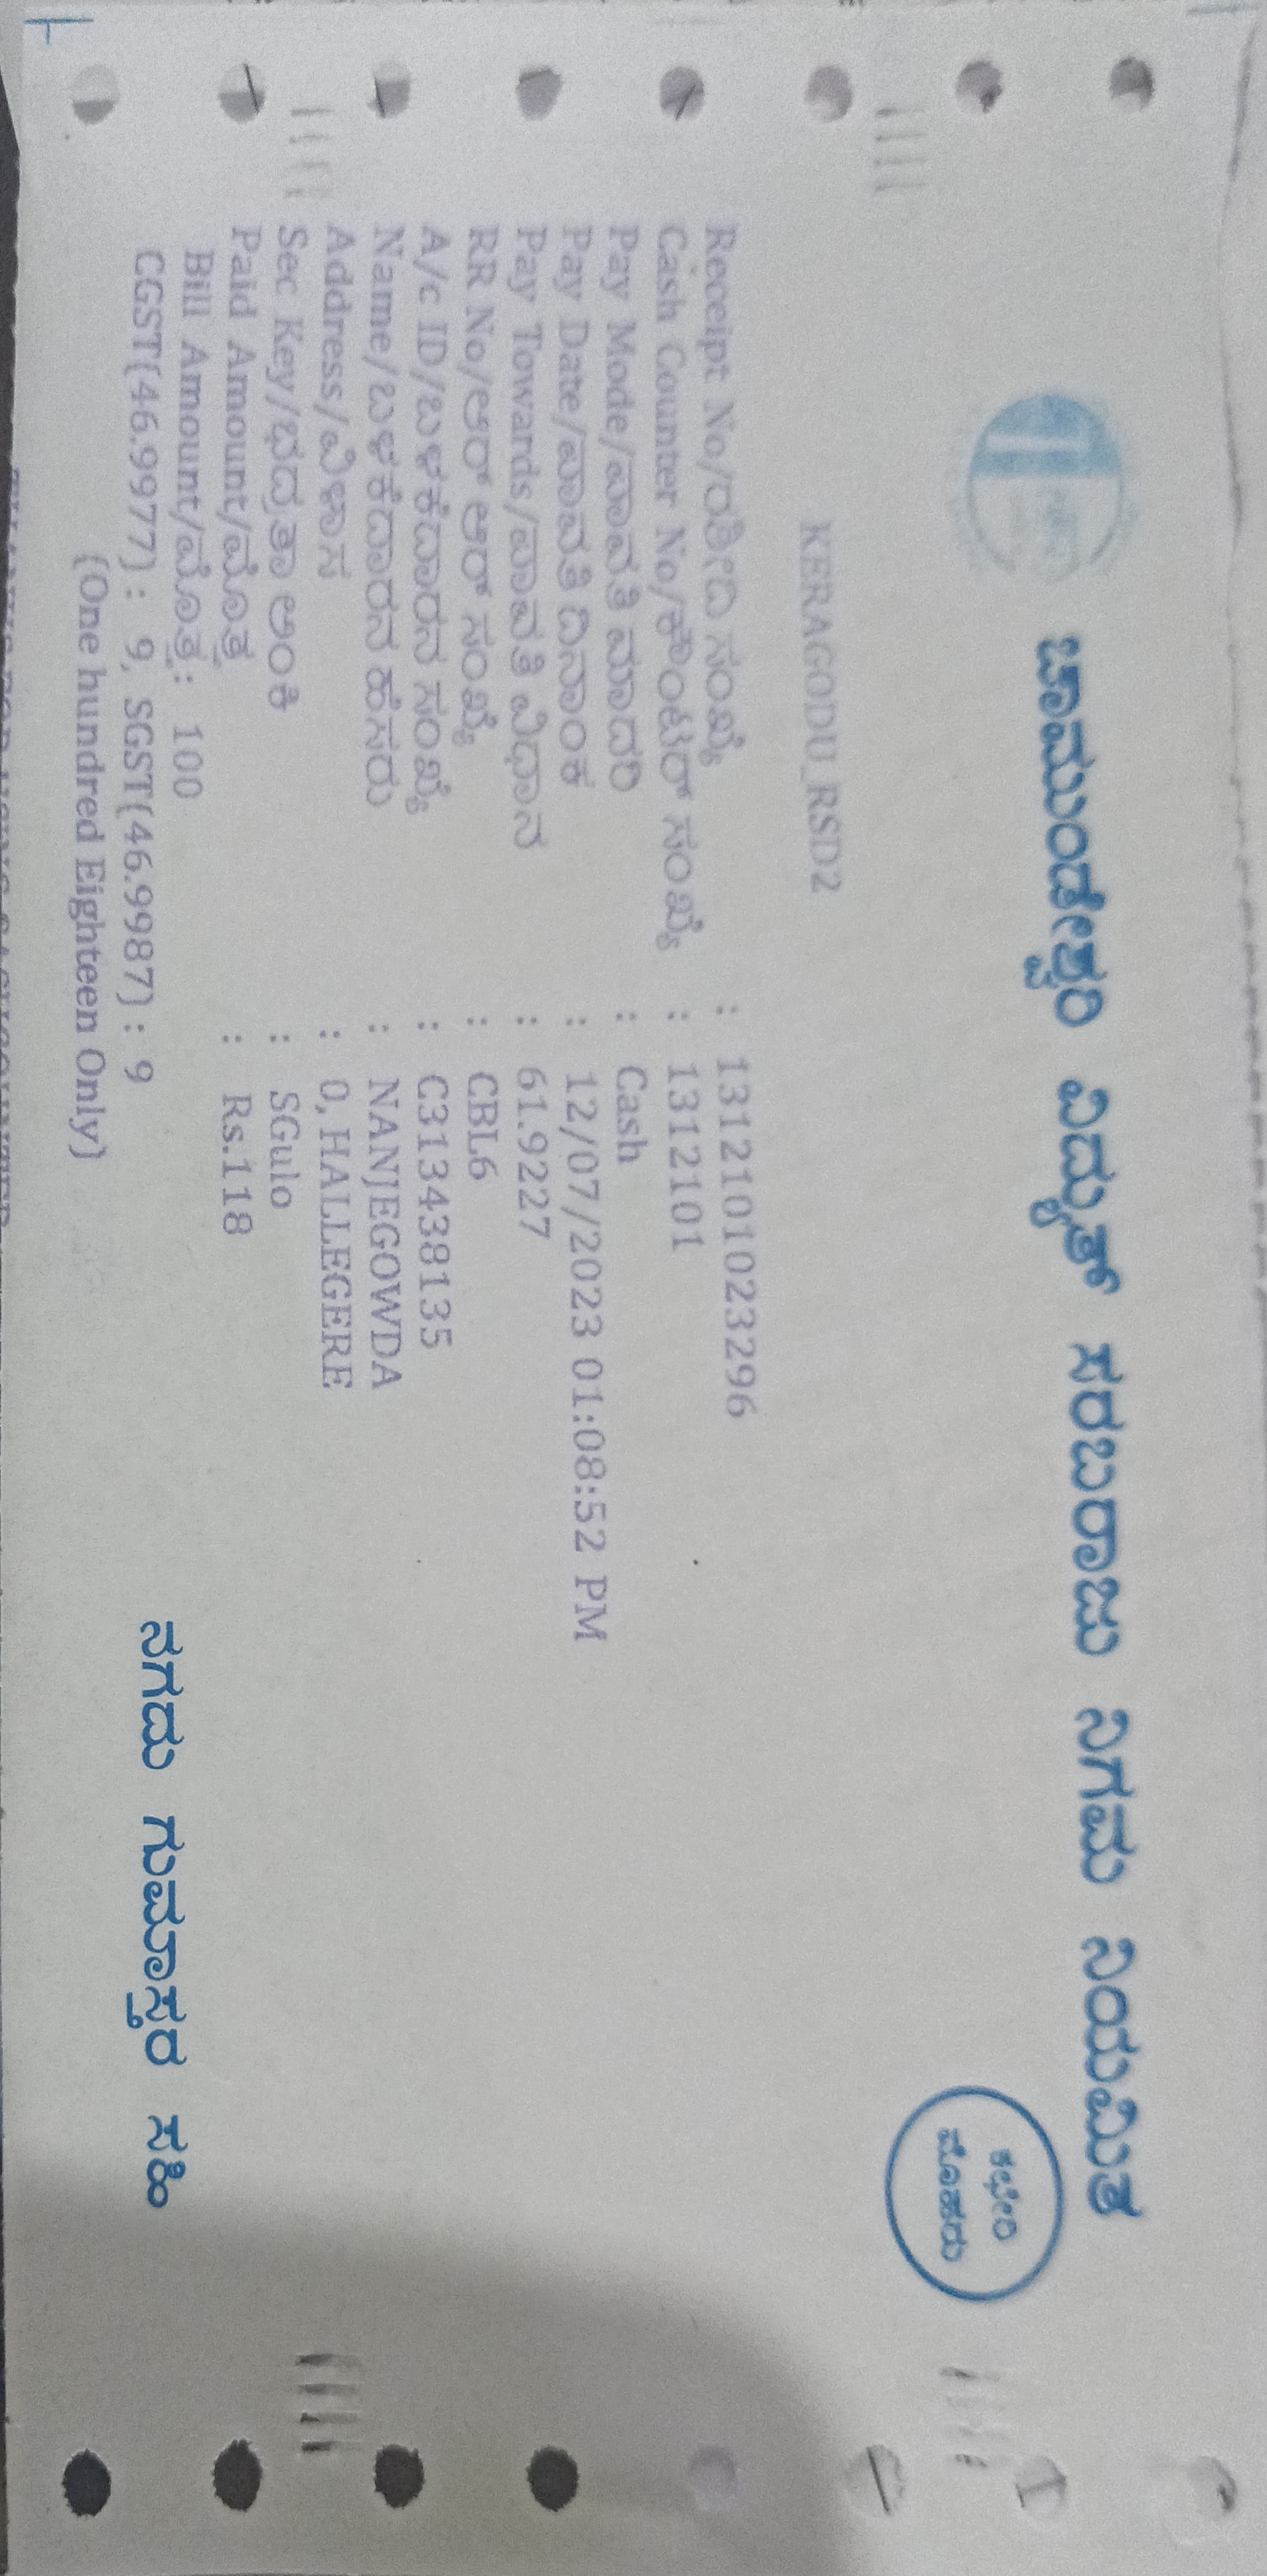 ಚಾಮುಂಡೇಶ್ವರಿ ವಿದ್ಯುತ್ ಸರಬರಾಜು ನಿಗಮ ನಿಯಮಿತ
ಕಛೇರಿ
ಮೊಹರು
KERAGODU_RSD2
Receipt No/ರಶೀದಿ ಸಂಖ್ಯೆ : 1312101023296
Cash Counter No/ಕೌಂಟರ್ ಸಂಖ್ಯೆ : 1312101
Pay Mode/ಪಾವತಿ ಮಾದರಿ : Cash
Pay Date/ಪಾವತಿ ದಿನಾಂಕ : 12/07/2023 01:08:52 PM
Pay Towards/ಪಾವತಿ ವಿಧಾನ : 61.9227
RR No/ಆರ್ ಆರ್ ಸಂಖ್ಯೆ : CBL6
A/c ID/ಬಳಕೆದಾರನ ಸಂಖ್ಯೆ : C313438135
Name/ಬಳಕೆದಾರನ ಹೆಸರು : NANJEGOWDA
Address/ವಿಳಾಸ : 0, HALLEGERE
Sec Key/ಭದ್ರತಾ ಅಂಕಿ : SGulo
Paid Amount/ಮೊತ್ತ : Rs.118
Bill Amount/ಮೊತ್ತ : 100
CGST(46.9977) : 9, SGST(46.9987) : 9
(One hundred Eighteen Only)
ನಗದು ಗುಮಾಸ್ತರ ಸಹಿ